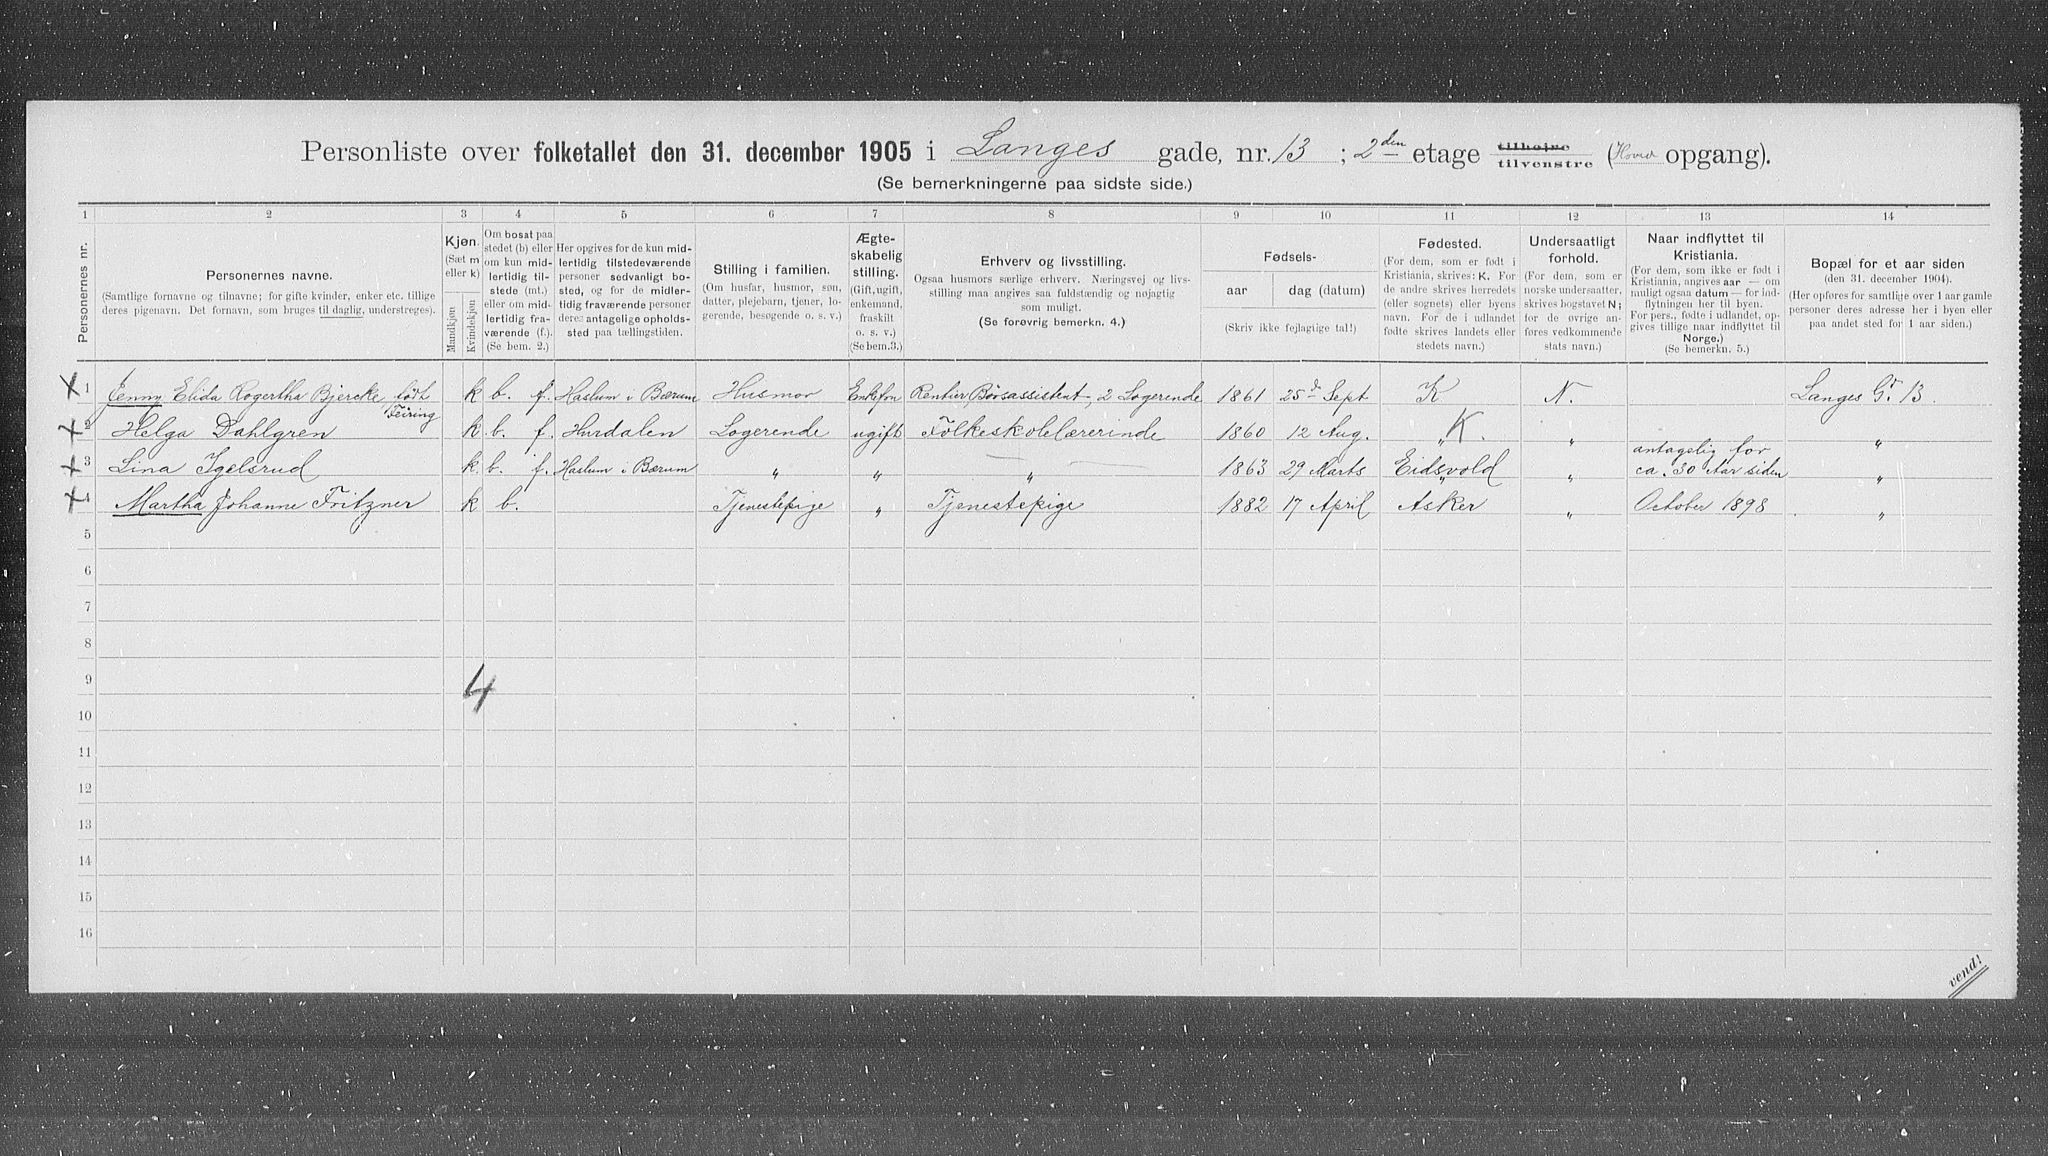 Personliste over folketallet den 31. december 1905 i Langes gade, nr. 13 ; 2den etage tilhøjre tilvenstre (Hoved opgang).
(Se bemerkningerne paa sidste side.)
1 2 3 4 5 6 7 8 9 10 11 12 13 14
Personernes nr.
Personernes navne.
(Samtlige fornavne og tilnavne; for gifte kvinder, enker etc. tillige
deres pigenavn. Det fornavn, som bruges til daglig, understreges).
Kjøn.
(Sæt m
eller k)
Mandkjøn
Kvindekjøn
Om bosat paa
stedet (b) eller
om kun mid-
lertidig til-
stede (mt.)
eller om mid-
lertidig fra-
værende (f.).
(Se bem. 2.)
Her opgives for de kun mid-
lertidig tilstedeværende
personer sedvanligt bo-
sted, og for de midler-
tidig fraværende personer
deres antagelige opholds-
sted paa tællingstiden.
Stilling i familien.
(Om husfar, husmor, søn,
datter, plejebarn, tjener, lo-
gerende, besøgende o. s. v.)
Ægte-
skabelig
stilling.
(Gift, ugift,
enkemand,
fraskilt
o. s. v.)
(Se bem.3.)
Erhverv og livsstilling.
Ogsaa husmors særlige erhverv. Næringsvej og livs-
stilling maa angives saa fuldstændig og nøjagtig
som muligt.
(Se forøvrig bemerkn. 4.)
Fødsels-
aar
dag (datum)
(Skriv ikke fejlagtige tal!)
Fødested.
(For dem, som er født i
Kristiania, skrives: K. For
de andre skrives herredets
(eller sognets) eller byens
navn. For de i udlandet
fødte skrives landets eller
stedets navn.)
Undersaatligt
forhold.
(For dem, som er
norske undersaatter,
skrives bogstavet N;
for de øvrige an-
føres vedkommende
stats navn.)
Naar indflyttet til
Kristiania.
(For dem, som ikke er født i
Kristiania, angives aar — om
muligt ogsaa datum — for ind-
flytningen her til byen.
For pers., fødte i udlandet, op-
gives tillige naar indflyttet til
Norge.)
(Se bemerkn. 5.)
Bopæl for et aar siden
(den 31. december 1904).
(Her opføres for samtlige over 1 aar gamle
personer deres adresse her i byen eller
paa andet sted for 1 aar siden.)
1 Jenny Elida Rogertha Bjercke født Feiring k b. f. Haslum i Bærum Husmor Enkefru Rentier, Børsassistent, 2 Logerende 1861 25d Sept K N. Langes Gd. 13.
2 Helga Dahlgren k. b. f. Hurdalen Logerende ugift Folkeskolelærerinde 1860 12 Aug. K. " "
3 Lina Igelsrud k. b. f. Haslum i Bærum " " " 1863 29 Marts Eidsvold " antagelig for ca. 30 Aar siden "
4 Martha Johanne Fritzner k b. Tjenestepige " Tjenestepige 1882 17 April Asker " October 1898 "
5
6
7
8
9
4
10
11
12
13
14
15
16
vend!